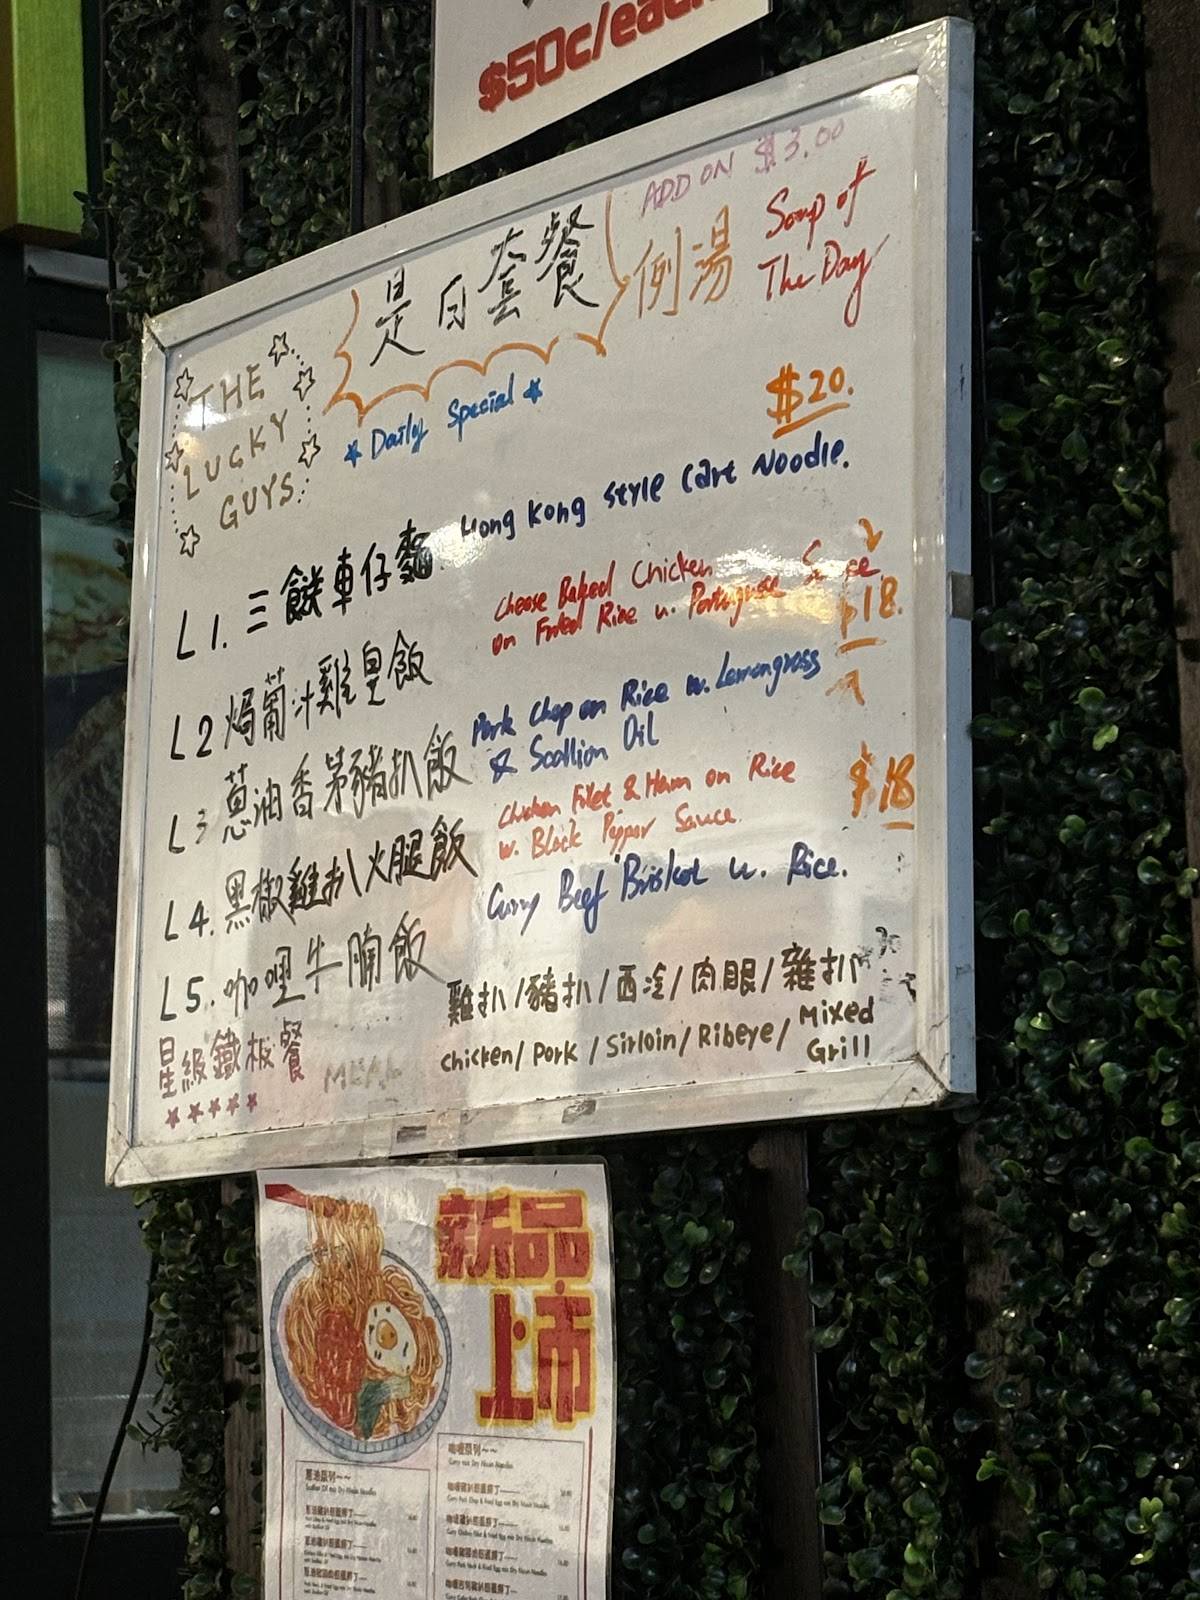 $50c/each
ADD ON $3.00
是日套餐
例湯
Soup of
The Day
THE
LUCKY
GUYS
Daily Special
$20.
L1. 三餸車仔麵
Hong Kong Style Cart Noodle.
L2 焗葡汁雞皇飯
Cheese Baked Chicken
on Fried Rice w. Portuguese
$18.
L3 蔥油香茅豬扒飯
Pork Chop on Rice w. Lemongrass
& Scallion Oil
L4. 黑椒雞扒火腿飯
Chicken Filet & Ham on Rice
w. Black Pepper Sauce.
$18
L5. 咖喱牛腩飯
Curry Beef Brisket w. Rice.
星級鐵板餐
雞扒/豬扒/西冷/肉眼/雜扒
Chicken/Pork/Sirloin/Ribeye/Mixed
Grill
新品
上市
蔥油系列~~
咖喱系列~~